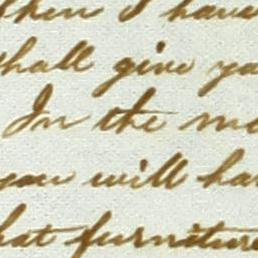 then I have
shall give yo
In the mo
you will ha
hat furniture